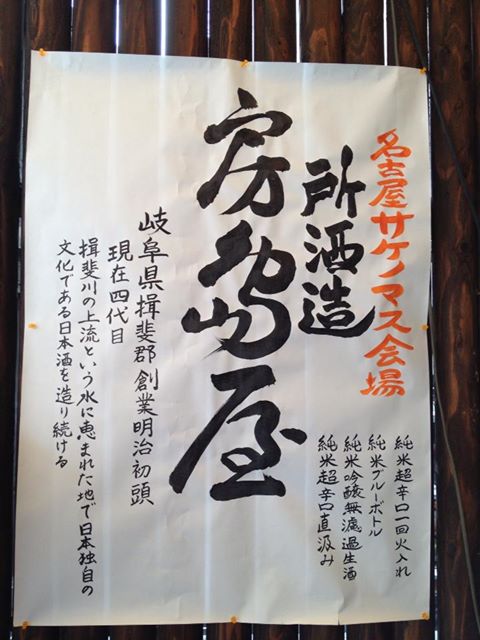 名古屋サケノマス会場
所酒造
房島屋
純米超辛口一回火入れ
純米ブルーボトル
純米吟醸無濾過生酒
純米超辛口直汲み
岐阜県揖斐郡創業明治初頭
現在四代目
揖斐川の上流という水に恵まれた地で日本独自の
文化である日本酒を造り続ける